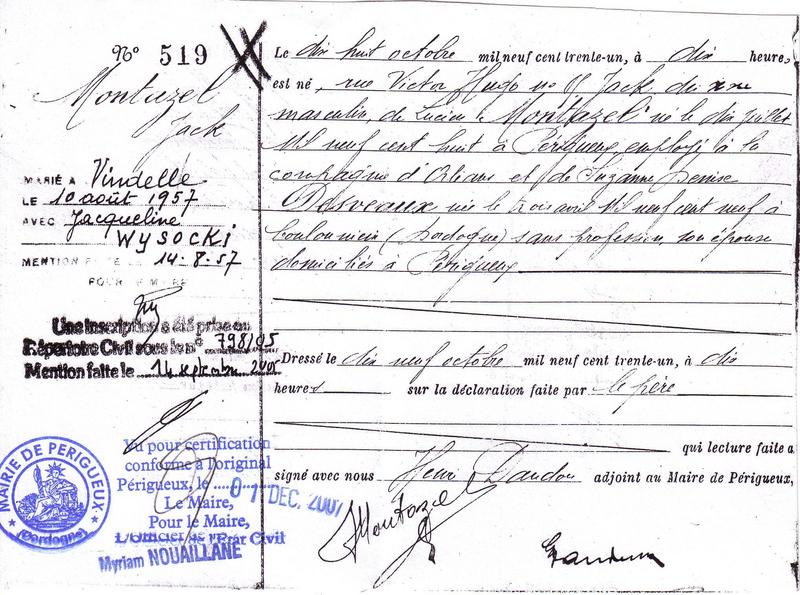 N° 519
Montazel
Jack
MARIÉ A Vindelle
LE 10 août 1957
AVEC Jacqueline
WYSOCKI
MENTION FAITE LE 14-8-57
POUR LE MAIRE
Une inscription a été prise au
Répertoire Civil sous le n° 798/05
Mention faite le 14 septembre 2005
Le dix huit octobre mil neuf cent trente-un, à dix heures
est né, rue Victor Hugo no Jack, du sexe
masculin, de Lucien Montazel né le dix juillet
Mil neuf cent huit à Périgueux employé à la
compagnie d'Orléans et de Suzanne Denise
Desveaux née le trois avril Mil neuf cent neuf à
Coulounieix (Dordogne) sans profession, son épouse
domiciliés à Périgueux
Dressé le dix neuf octobre mil neuf cent trente-un, à dix
heures sur la déclaration faite par le père
qui lecture faite a
signé avec nous Henri Dandou adjoint au Maire de Périgueux,
Montazel
MAIRIE DE PERIGUEUX
(Dordogne)
Vu pour certification
conforme à l'original
Périgueux, le 01 DEC. 2007
Le Maire,
Pour le Maire,
L'Officier de l'Etat Civil
Myriam NOUAILLANE